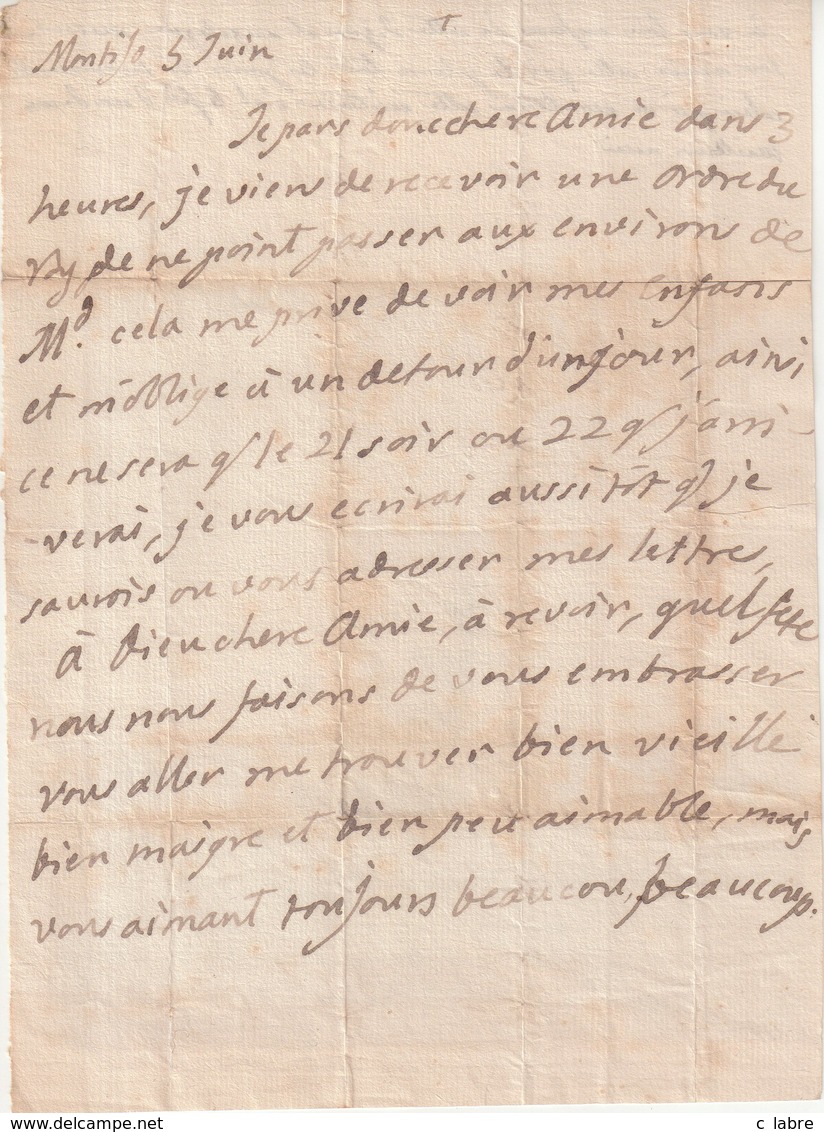 Montijo 5 Juin
Je pars donc chere Amie dans 3
heures, je viens de recevoir une ordre du
Ry de ne point passer aux environs de
Md. cela me prive de voir mes Enfans
et m'oblige à un detour d'un jour, ainsi
ce ne sera q' le 21 soir ou 22 q' j'arri-
-verai, je vous ecrirai aussitôt q' je
saurois ou vous adresser mes lettres,
à Dieu chere Amie, à revoir, quel fete
nous nous faisons de vous embrasser
vous aller me trouver bien vieille
bien maigre et bien peu aimable, mais
vous aimant toujours beaucou, beaucoup.
www.delcampe.net
c labre